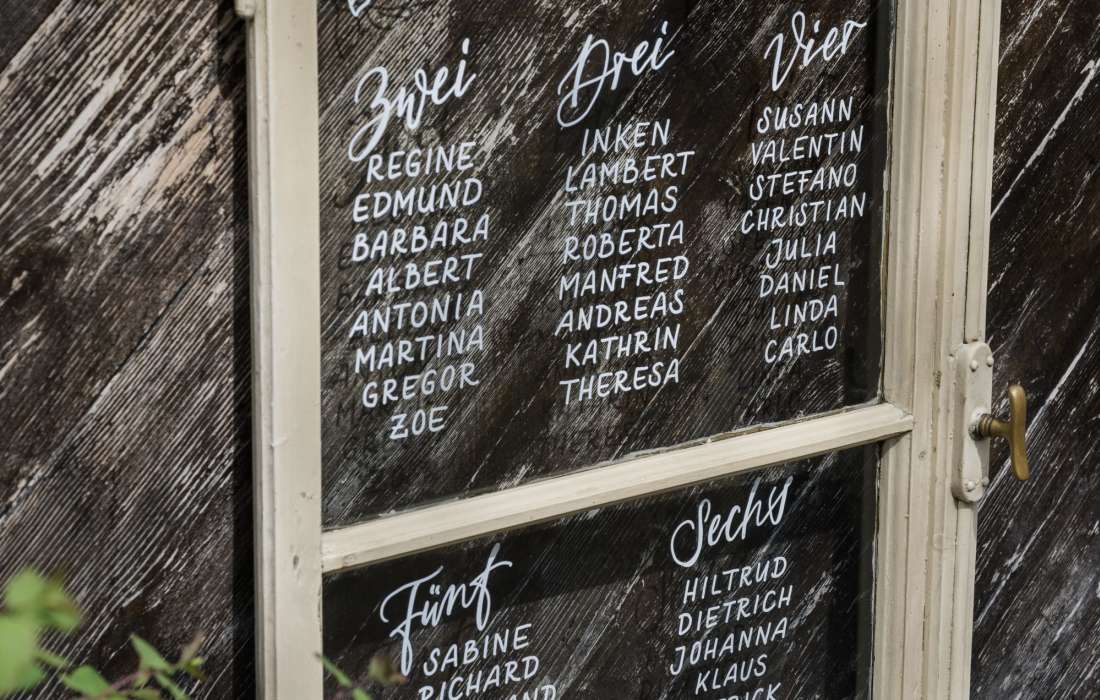 Zwei
REGINE
EDMUND
BARBARA
ALBERT
ANTONIA
MARTINA
GREGOR
ZOE
Drei
INKEN
LAMBERT
THOMAS
ROBERTA
MANFRED
ANDREAS
KATHRIN
THERESA
Vier
SUSANN
VALENTIN
STEFANO
CHRISTIAN
JULIA
DANIEL
LINDA
CARLO
Fünf
SABINE
RICHARD
Sechs
HILTRUD
DIETRICH
JOHANNA
KLAUS